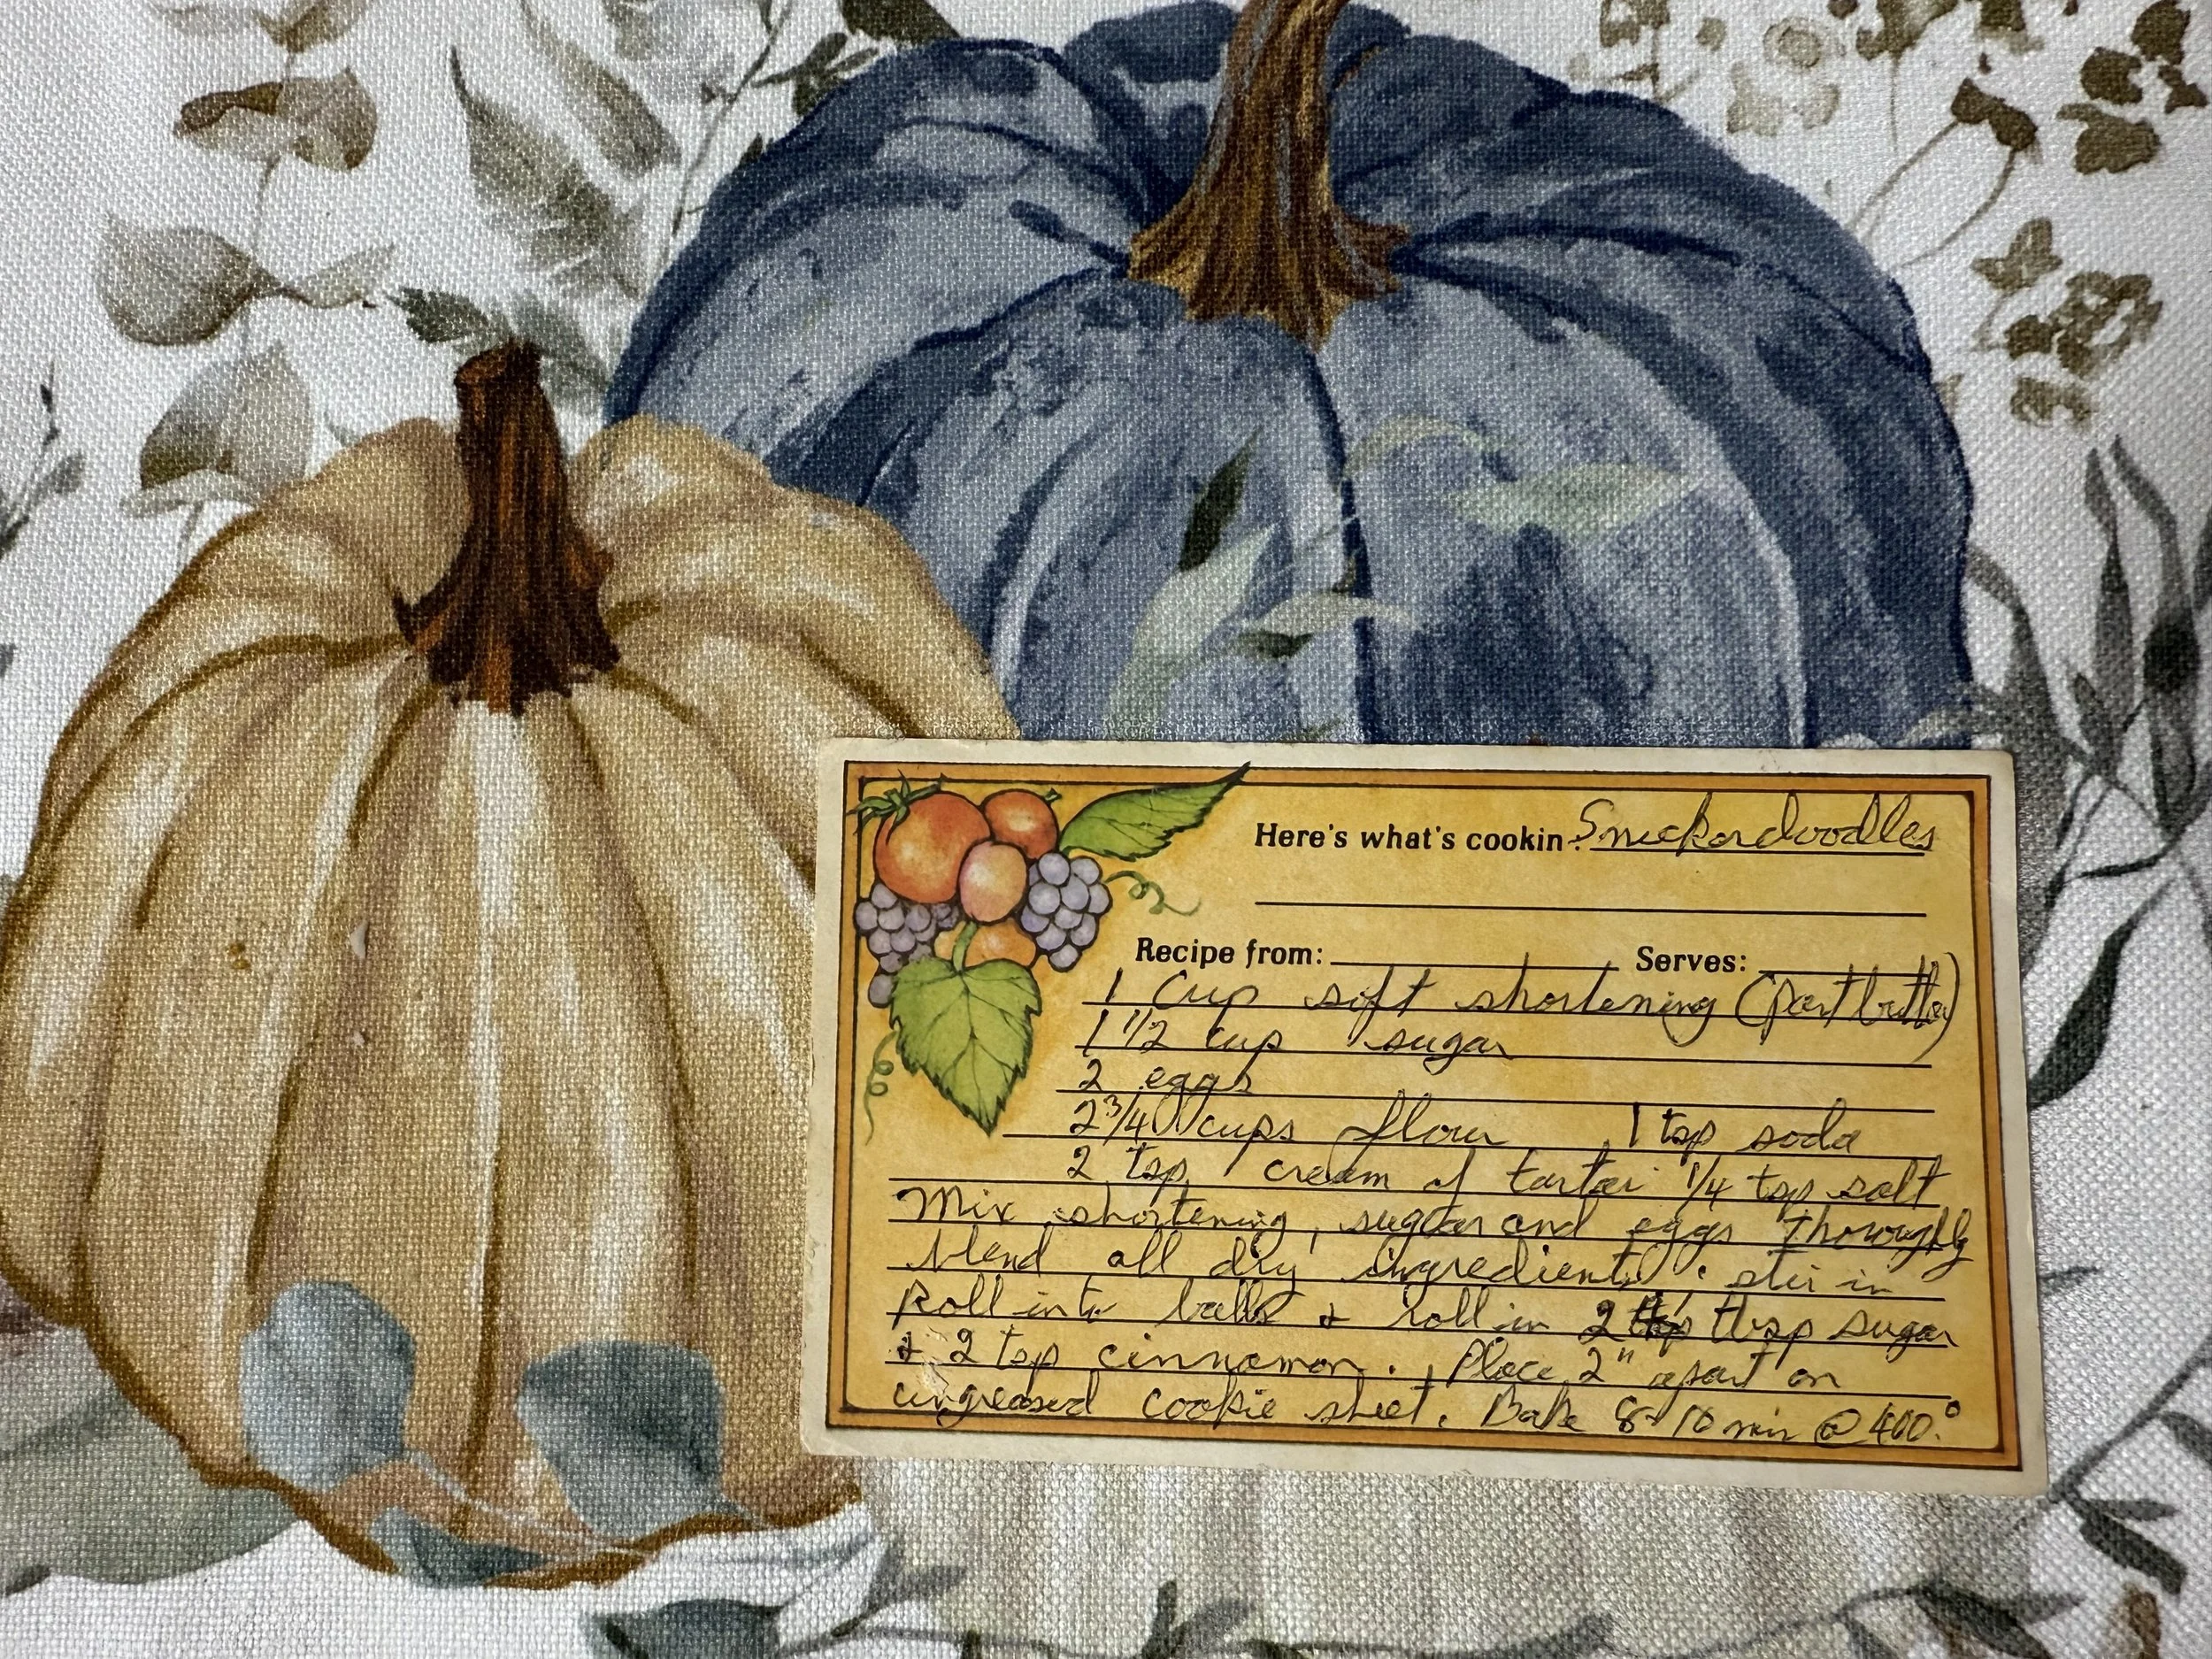 Here's what's cookin: Snickerdoodles
Recipe from: Serves:
1 Cup soft shortening (part butter)
1 1/2 cup sugar
2 eggs
2 3/4 cups flour 1 tsp soda
2 tsp cream of tartar 1/4 tsp salt
Mix shortening, sugar and eggs thoroughly
blend all dry ingredients. stir in
Roll into balls & roll in 2 tbsp sugar
& 2 tsp cinnamon. Place 2" apart on
ungreased cookie sheet. Bake 8-10 min @ 400.°